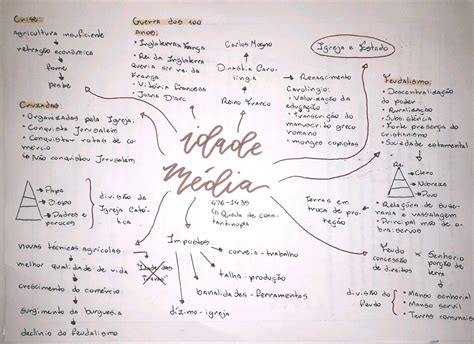 Crise:
agricultura insuficiente
retração econômica
fome
peste
Guerra dos 100
Anos:
• Inglaterra x França
• Rei da Inglaterra
queria ser rei da
França
• Vitória francesa
• Joana D'arc
Carlos Magno
Dinastia Caro-
língia
Reino Franco
Renascimento
Carolíngio:
• Valorização da
educação
• Transcrição do
manuscrito greco
romano
monges copistas
Igreja e Estado
Feudalismo:
• Descentralização
do poder
• Ruralização
• Subsistência
• Forte presença do
cristianismo
• Sociedade estamental
Rei
Clero
Nobreza
Povo
• Relações de suse-
rania e vassalagem
• Principal mão de o-
bra: servos
Terras em
troca de pro-
teção
Cruzadas:
• Organizadas pela Igreja;
• Conquista Jerusalém
• Conquistar rotas de co-
mércio
↳ Não conquistou Jerusalém
Idade
Média
476-1453
(Queda de cons-
tantinopla)
Papa
Bispo
Padres e
párocos
divisão da
Igreja Cató-
lica
novas técnicas agrícolas
melhor qualidade de vida
crescimento do comércio
surgimento da burguesia
declínio do feudalismo
Idade das
Trevas
Impostos
corveia - trabalho
talha - produção
banalidades - ferramentas
dízimo - igreja
Feudo x Senhorio
concessão
de direitos
porção de
terra
divisão do
feudo
• Manso senhorial
• Manso servil
• Terras comunais